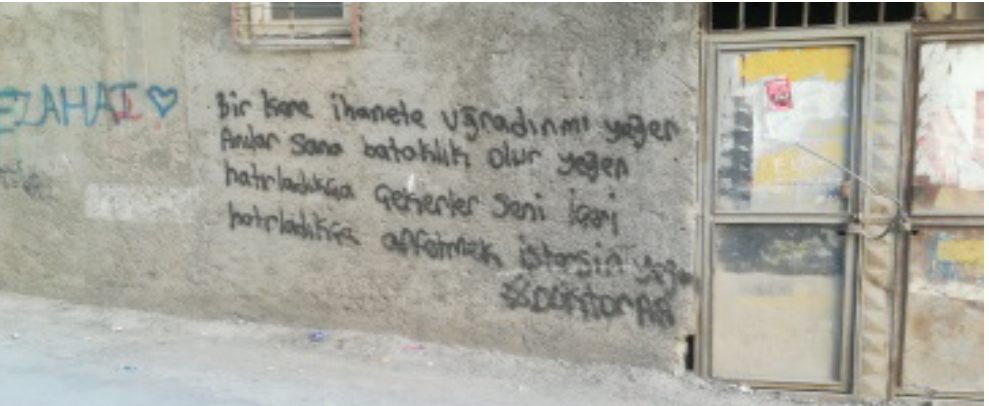 EZAHAT
Bir kere ihanete uğradınmı yeğen
Anılar sana bataklık olur yeğen
hatırladıkça çekerler seni içeri
hatırladıkça affetmek istersin yeğen